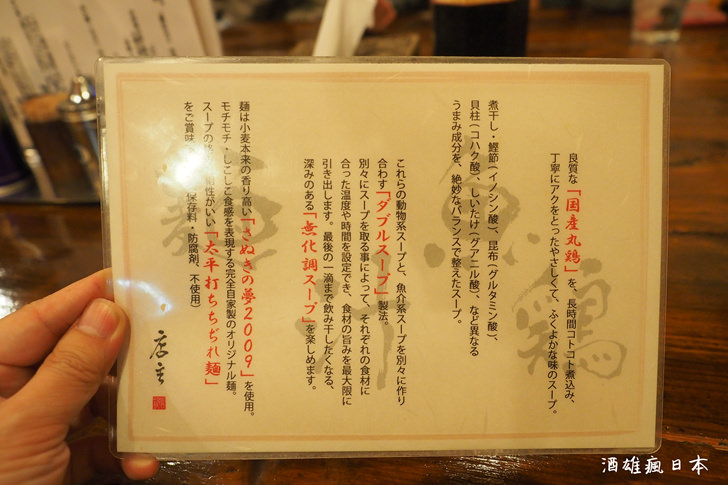 良質な「国産丸鶏」を、長時間コトコト煮込み、
丁寧にアクをとったやさしくて、ふくよかな味のスープ。
煮干し・鰹節(イノシン酸)、昆布(グルタミン酸)、
貝柱(コハク酸)、しいたけ(グアニル酸)、など異なる
うまみ成分を、絶妙なバランスで整えたスープ。
これらの動物系スープと、魚介系スープを別々に作り
合わす「ダブルスープ」製法。
別々にスープを取る事によって、それぞれの食材に
合った温度や時間を設定でき、食材の旨みを最大限に
引き出します。最後の一滴まで飲み干したくなる、
深みのある「無化調スープ」を楽しめます。
麺は小麦本来の香り高い「さぬきの夢2009」を使用。
モチモチ・しこしこ食感を表現する完全自家製のオリジナル麺。
スープの 相性がいい「太平打ちちぢれ麺」
をご賞味 保存料・防腐剤、不使用)
店主
鶏
魚
酒雄瘋日本